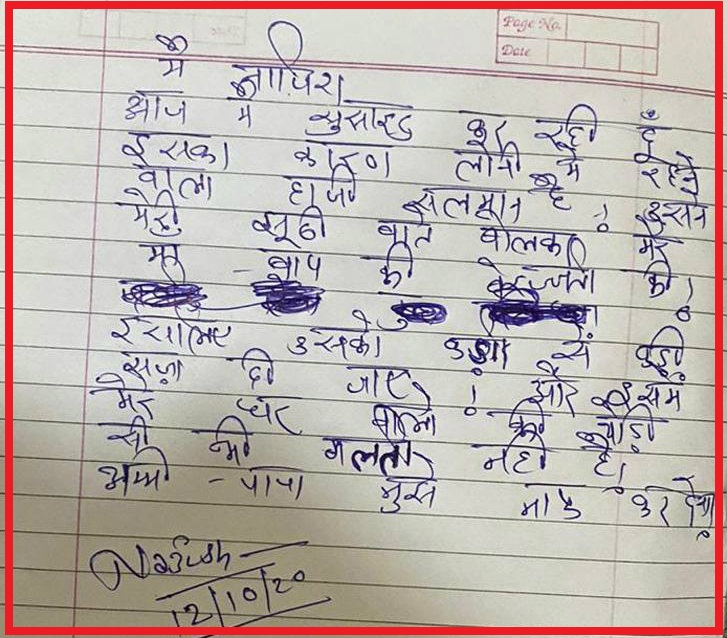 Page No.
Date
मै नाफिश
आज मै सुसाइड कर रही हूँ
इसका कारण लोनी मे रहने
वाला हाजी सलमान है ! उसने
मेरी झूठी बात बोलकर मेरे
माँ - बाप की बेइज्जती की !
इसलिए उसको कड़ी से कड़ी
सज़ा दी जाए ! और इसमे
मेरे घर वालो की थोड़ी
सी भी गलती नही है !
अम्मी - पापा मुझे माफ कर देना !
Nafish
12/10/20